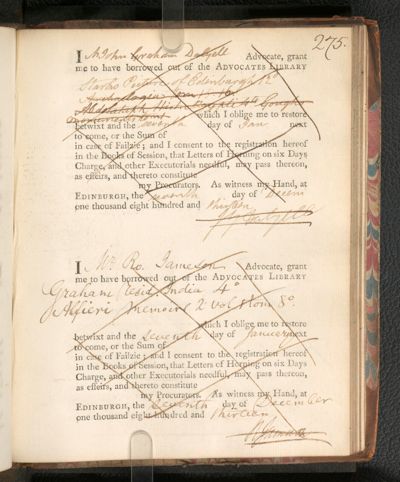 275.
I Mr John Graham Dalyell Advocate, grant
me to have borrowed out of the ADVOCATES LIBRARY
Starks Picture of Edenburgh
which I oblige me to restore
betwixt and the seventh day of Jan. next
to come, or the Sum of
in case of Failzie; and I consent to the registration hereof
in the Books of Session, that Letters of Horning on six Days
Charge, and other Executorials needful, may pass thereon,
as effeirs, and thereto constitute
my Procurators. As witness my Hand, at
EDINBURGH, the seventh day of Decem
one thousand eight hundred and thirteen
I Mr. Ro. Jameson Advocate, grant
me to have borrowed out of the ADVOCATES LIBRARY
Graham India 4o
Alfieri Memoirs 2 vol 8o
which I oblige me to restore
betwixt and the seventh day of January next
to come, or the Sum of
in case of Failzie; and I consent to the registration hereof
in the Books of Session, that Letters of Horning on six Days
Charge, and other Executorials needful, may pass thereon,
as effeirs, and thereto constitute
my Procurators. As witness my Hand, at
EDINBURGH, the seventh day of December
one thousand eight hundred and thirteen